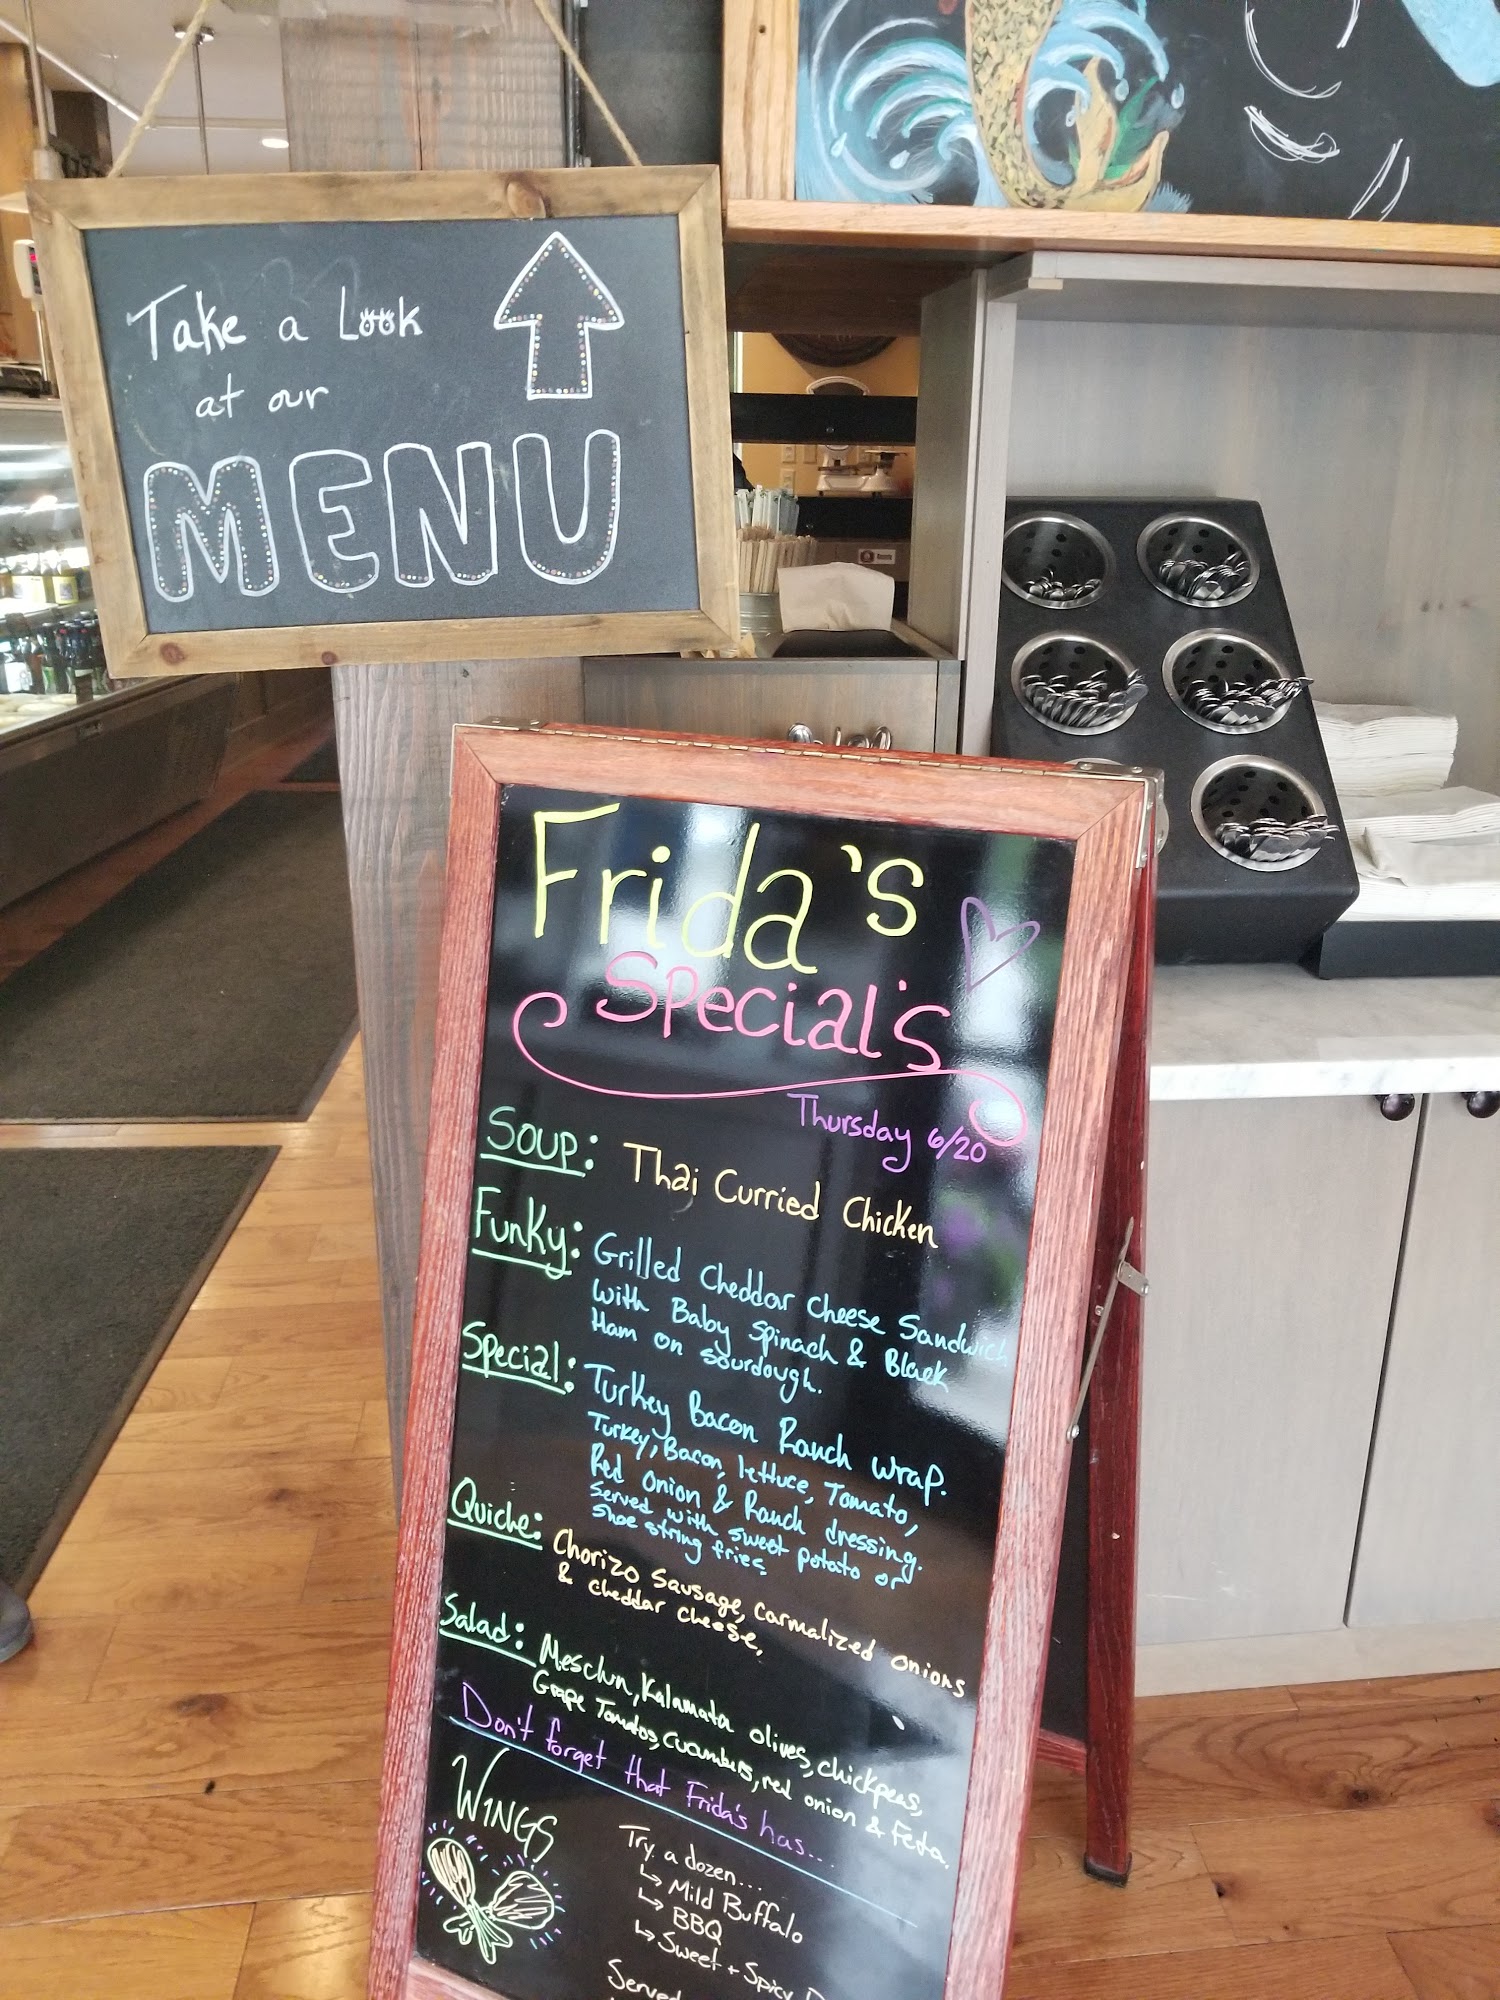 Take a Look
at our
MENU
Frida's
Special's
Thursday 6/20
Soup: Thai Curried Chicken
Funky: Grilled Cheddar Cheese Sandwich
with Baby Spinach & Black
Ham on Sourdough.
Special: Turkey Bacon Ranch wrap.
Turkey, Bacon, lettuce, Tomato,
Red Onion & Ranch dressing.
Served with sweet potato or
Shoe string fries
Quiche: Chorizo Sausage, Carmalized onions
& cheddar cheese,
Salad: Mesclun, Kalamata olives, chickpeas,
Grape Tomatos, cucumbers, red onion & Feta.
Don't forget that Frida's has...
WINGS
Try a dozen...
Mild Buffalo
BBQ
Sweet + Spicy
Served